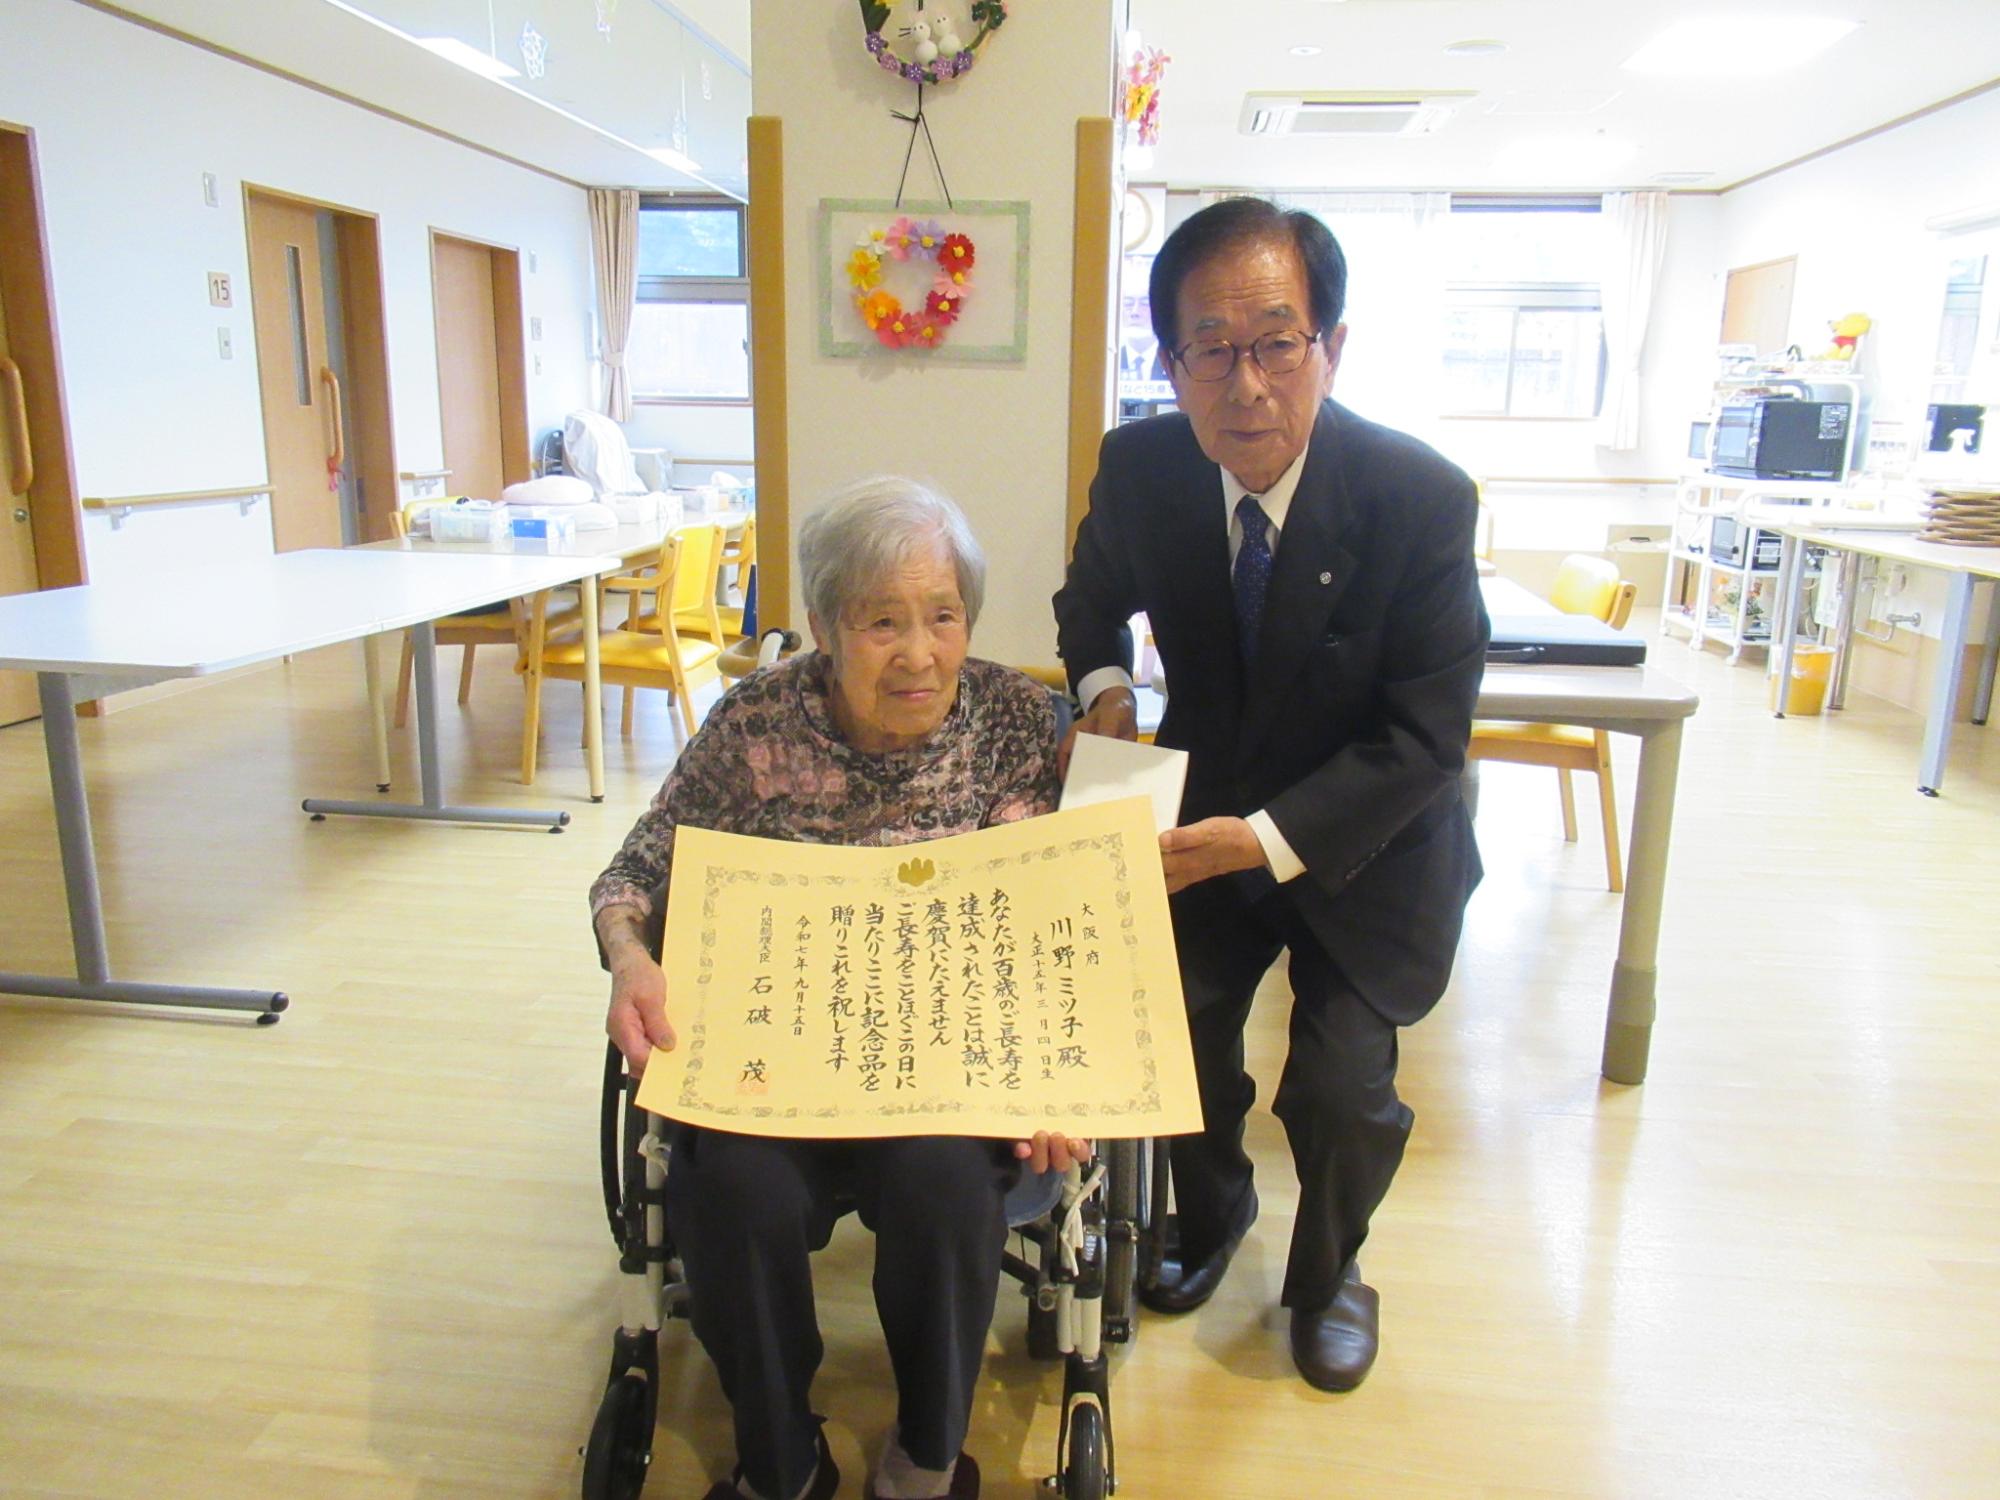 大阪府
川野ミツ子殿
大正十五年三月四日生
あなたが百歳のご長寿を
達成されたことは誠に
慶賀にたえません
ご長寿をことほぐこの日に
当たりここに記念品を
贈りこれを祝します
令和七年九月十五日
内閣総理大臣 石破 茂
15